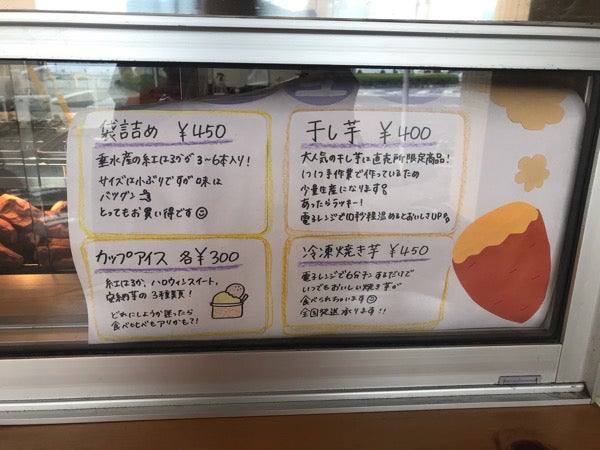 袋詰め ¥450
垂水産の紅はるかが3〜6本入り!
サイズは小ぶりですが味は
バツグン
とってもお買い得です
干し芋 ¥400
大人気の干し芋は直売所限定商品!
1つ1つ手作業で作っているため
少量生産になります
あったらラッキー!
電子レンジで10秒程温めるとおいしさUP
カップアイス 各¥300
紅はるか、ハロウィンスイート、
安納芋の3種類!
どれにしようか迷ったら
食べ比べもアリかも?!
冷凍焼き芋 ¥450
電子レンジで6分チンするだけで
いつでもおいしい焼き芋が
食べられちゃいます
全国発送承ります!!